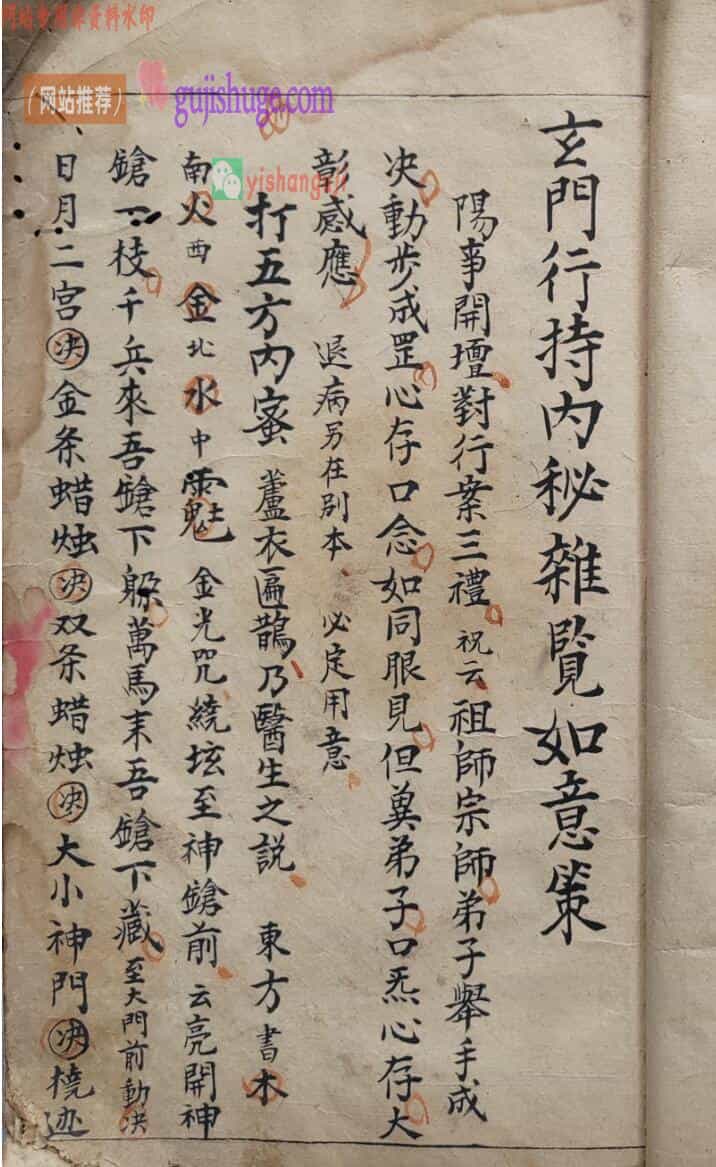 网站专用非资料水印
（网站推荐）
gujishuge.com
yishangyi
玄門行持内秘雜覽如意策
陽事開壇對行案三禮祝云祖師宗師弟子舉手成
决動步成罡心存口念如同眼見但冀弟子口炁心存大
彰感應 退病另在别本 必定用意
打五方内蜜 蘆衣匾鵲乃醫生之説 東方書木
南火西金北水中 金光咒繞坛至神鎗前云亮開神
鎗一枝千兵來吾鎗下躱萬馬来吾鎗下藏至大門前動决
日月二宫决金条蜡烛决双条蜡烛决大小神門决